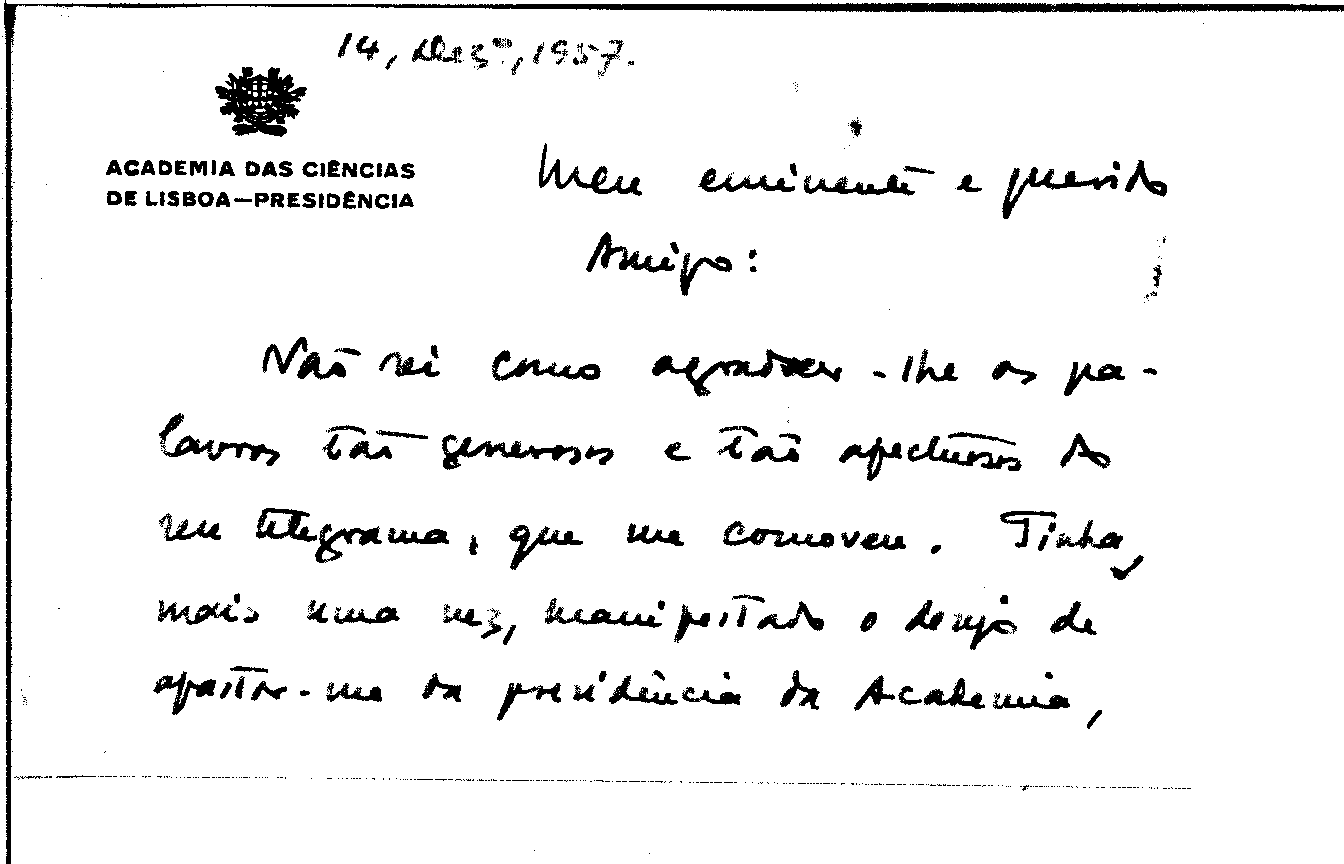 14, Dezº, 1957.
ACADEMIA DAS CIÊNCIAS
DE LISBOA—PRESIDÊNCIA
Meu eminente e querido
Amigo:
Não sei como agradecer-lhe as pa-
lavras tão generosas e tão afectuosas do
seu telegrama, que me comoveu. Tinha,
mais uma vez, manifestado o desejo de
afastar-me da presidência da Academia,